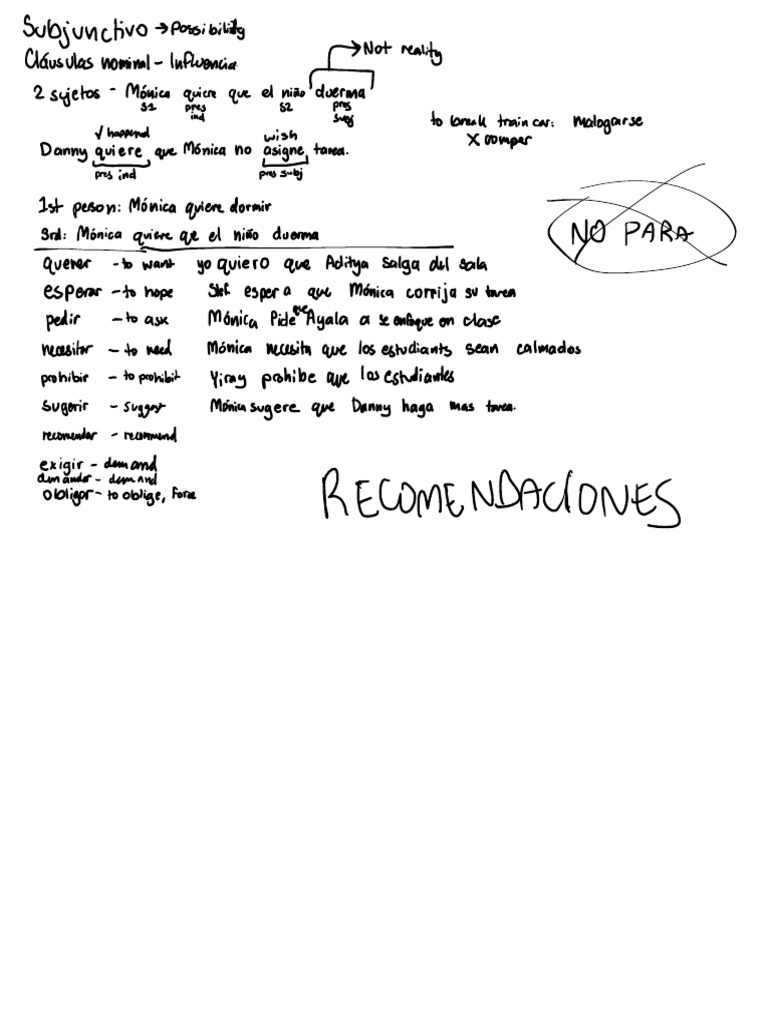 Subjunctivo → Possibility
Cláusulas nominal - Influencia
→ Not reality
2 sujetos - Mónica quiere que el niño duerma
S1 pres ind S2 pres subj
to break train car: malograrse
X romper
√ happend wish
Danny quiere que Mónica no asigne tarea.
pres ind pres subj
1st person: Mónica quiere dormir
3rd: Mónica quiere que el niño duerma
NO PARA
querer - to want yo quiero que Aditya salga del sala
esperar - to hope espera que Mónica corrija su tarea
pedir - to ask Mónica Pide que Ayala a se enfoque en clase
necesitar - to need Mónica necesita que los estudiants sean calmados
prohibir - to prohibit prohibe que los estudiantes
sugerir - suggest Mónica sugere que Danny haga mas tarea.
recomendar - recommend
exigir - demand
demandar - demand
obligar - to oblige, Force
RECOMENDACIONES